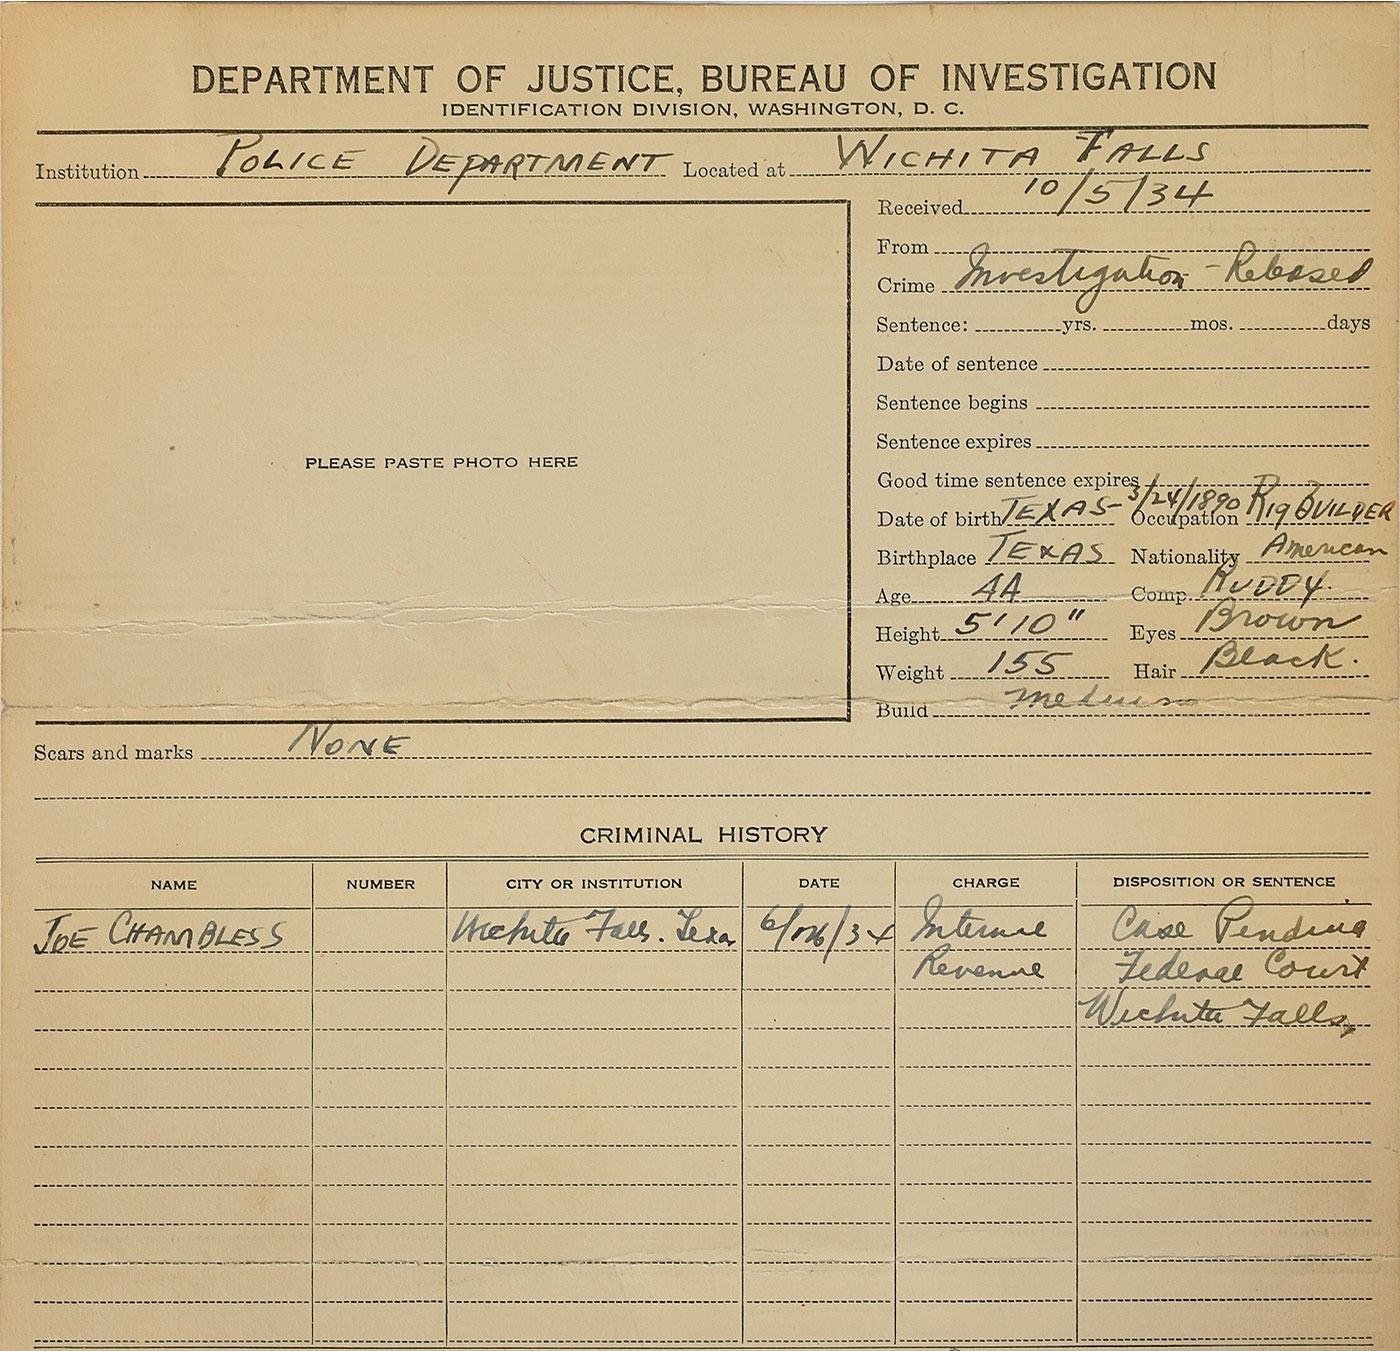 DEPARTMENT OF JUSTICE, BUREAU OF INVESTIGATION
IDENTIFICATION DIVISION, WASHINGTON, D. C.
Institution POLICE DEPARTMENT Located at WICHITA FALLS
Received 10/5/34
From
Crime Investigation - Released
Sentence: yrs. mos. days
Date of sentence
Sentence begins
Sentence expires
Good time sentence expires
Date of birth TEXAS- 3/24/1890 Occupation RIG BUILDER
Birthplace TEXAS Nationality American
Age 44 Comp. RUDDY.
Height 5'10" Eyes Brown
Weight 155 Hair Black.
Build medium
PLEASE PASTE PHOTO HERE
Scars and marks NONE
CRIMINAL HISTORY
NAME NUMBER CITY OR INSTITUTION DATE CHARGE DISPOSITION OR SENTENCE
JOE CHAMBLESS Wichita Falls. Texas Internal Case Pending
Revenue Federal Court
Wichita Falls,